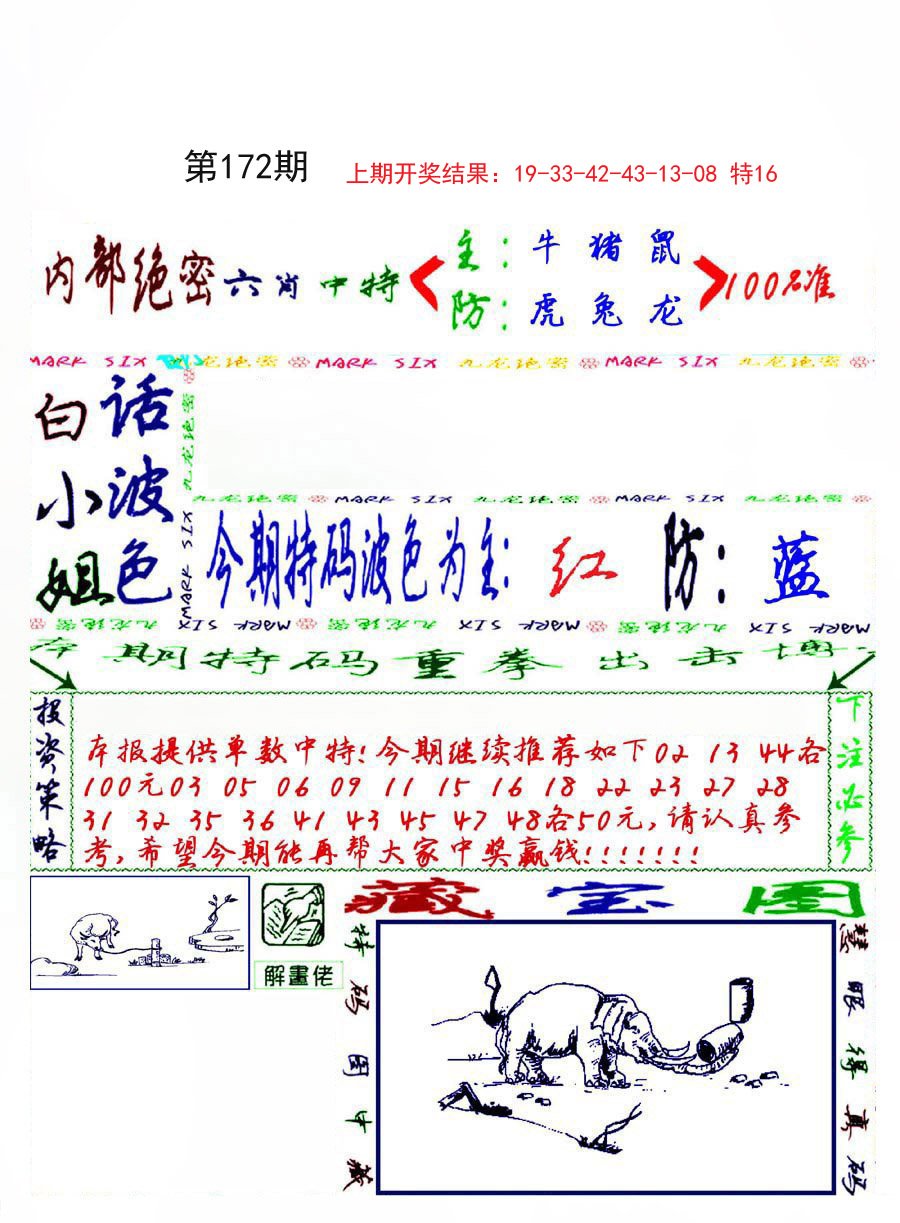 第172期
上期开奖结果：19-33-42-43-13-08 特16
内部绝密六肖中特
主：牛猪鼠
防：虎兔龙
100%准
MARK SIX 九龙绝密 MARK SIX 九龙绝密 MARK SIX 九龙绝密
白话
小波
姐色
九龙绝密 MARK SIX
九龙绝密 MARK SIX 九龙绝密 MARK SIX 九龙绝密
今期特码波色为主：红 防：蓝
九龙绝密 MARK SIX 九龙绝密 MARK SIX 九龙绝密 MARK SIX
本期特码重拳出击博
投资策略
本报提供单数中特!今期继续推荐如下02 13 44各
100元03 05 06 09 11 15 16 18 22 23 27 28
31 32 35 36 41 43 45 47 48各50元,请认真参
考,希望今期能再帮大家中奖赢钱!!!!!!!
下注必参
藏宝图
解畫佬
特码图中藏
慧眼得真码